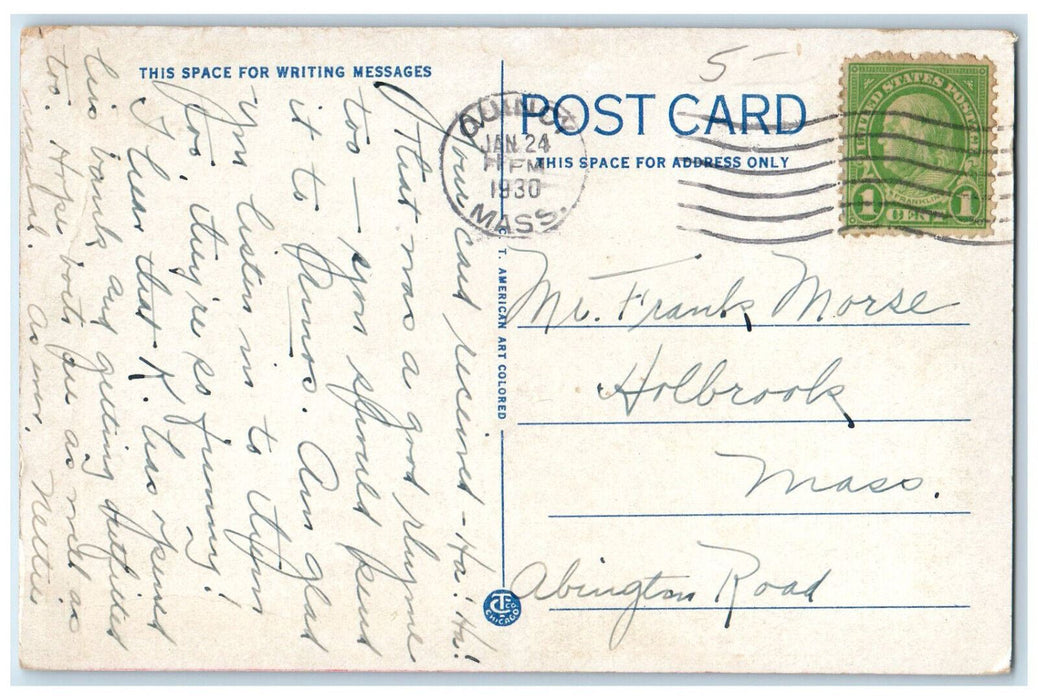 THIS SPACE FOR WRITING MESSAGES
Your card received - Ha! Ha!
That was a good rhyme
too - you should send
it to Am glad
you listen in to
too, they're so funny!
I hear that K. has opened
bank and getting outfitted
too. Hope boots as well as
As ever, Nettie
C. T. AMERICAN ART COLORED
CT CO CHICAGO
POST CARD
THIS SPACE FOR ADDRESS ONLY
5-
QUINCY
JAN 24
PM
1930
MASS.
UNITED STATES POSTAGE
FRANKLIN
1 CENT 1
Mr. Frank Morse
Holbrook
Mass.
Abington Road